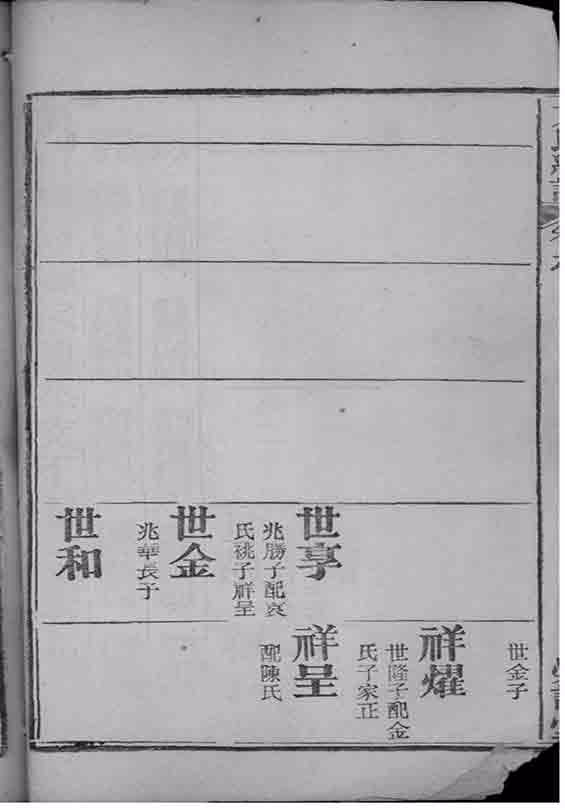 世享
兆勝子配袁
氏祧子祥呈
世金
兆華長子
世和
世金子
祥燿
世隆子配金
氏子家正
祥呈
配陳氏